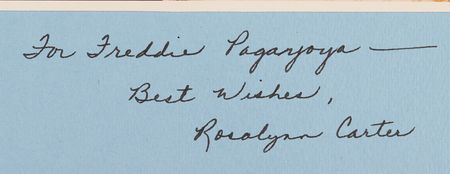 For Freddie Paganjoya —
Best Wishes,
Rosalynn Carter